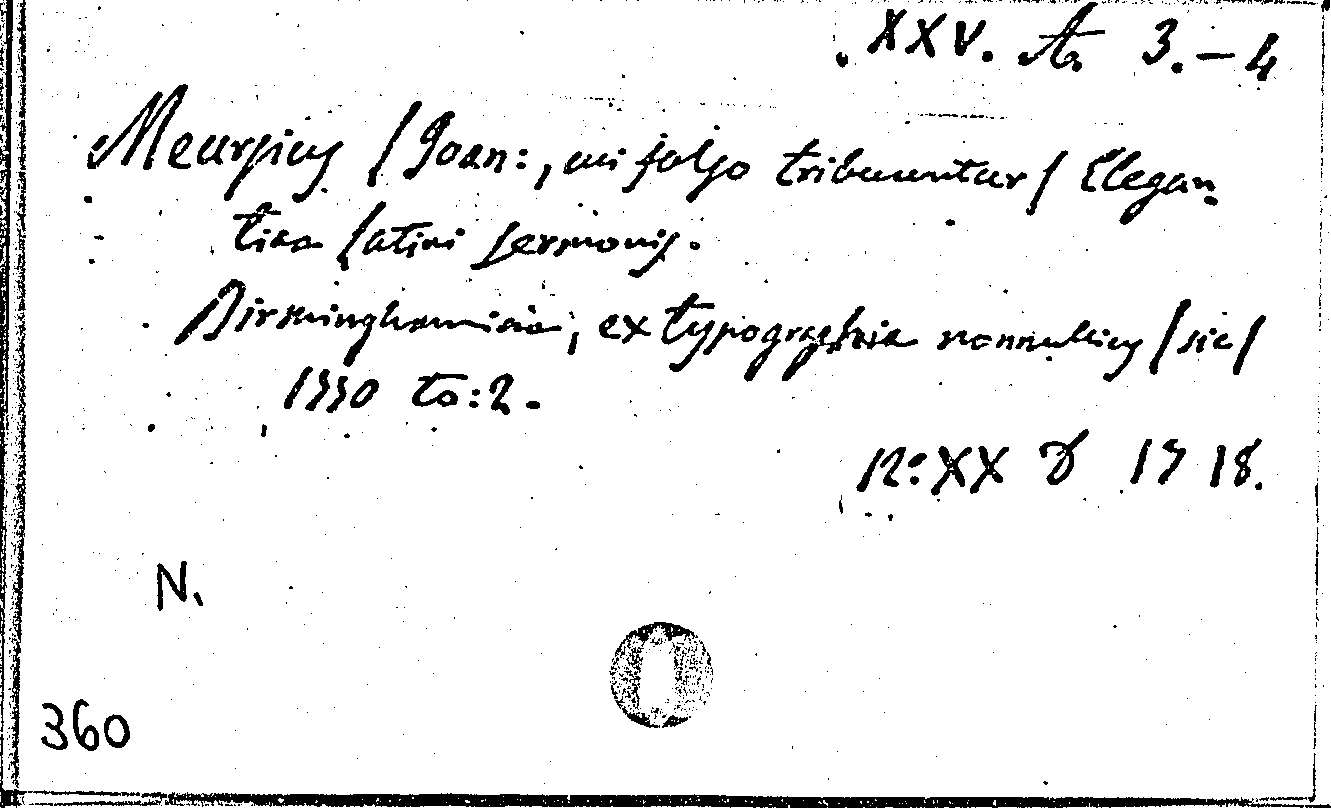 XXV. A. 3.-4
Meursius /Joan:, cui falso tribuuntur/ Elegan-
tiae latini sermonis.
Birminghamiae, ex typographia nonnullius /sic/
1770 to: 2.
12° XX 17 18.
N.
360